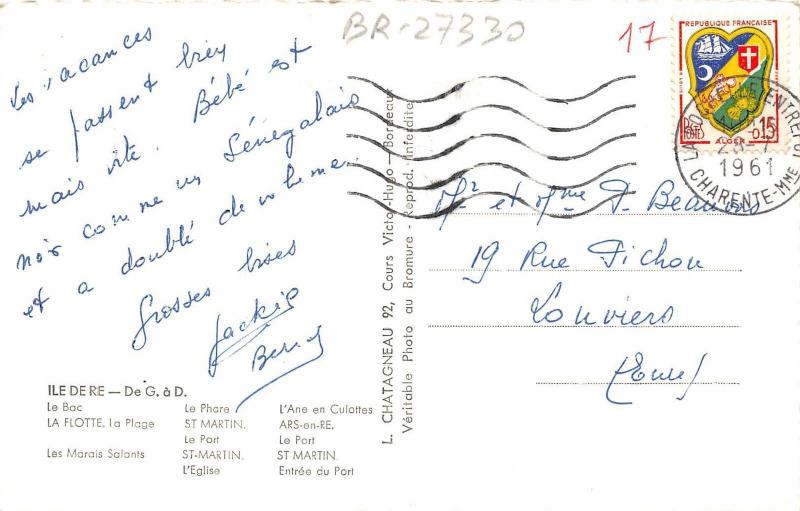 BR-27330
17
REPUBLIQUE FRANÇAISE
POSTES
0.15
ALGER
1961
CHARENTE-Mme
Les vacances
se passent bien
mais vite. Bébé est
noir comme un Sénégalais
et a doublé de volume.
Grosses bises
Jackie
Mr et Mme P. Beauvais
19 Rue Pichou
Louviers
(Eure)
L. CHATAGNEAU 92, Cours Victor-Hugo - Bordeaux
Véritable Photo au Bromure - Reprod. Interdite
ILE DE RE — De G. à D.
Le Bac Le Phare L'Ane en Culottes
LA FLOTTE. La Plage ST MARTIN. ARS-en-RE.
Le Port Le Port
Les Marais Salants ST-MARTIN. ST MARTIN.
L'Eglise Entrée du Port